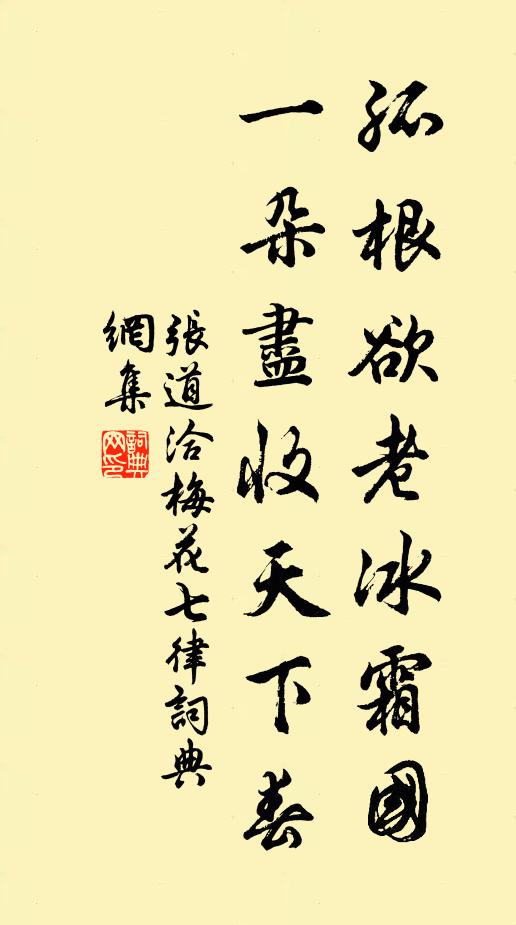 孤根欲老冰霜國
一朵盡收天下春
張道洽梅花七律詞典
網集
詞典
网印